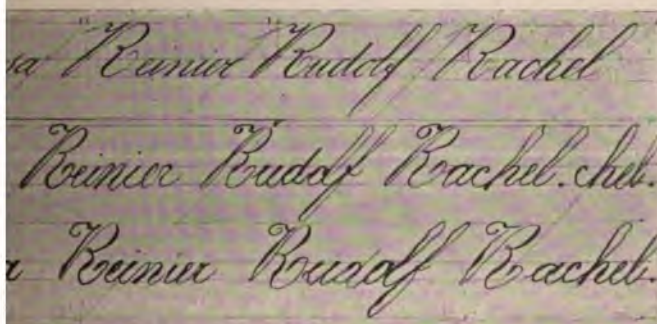 Reinier Rudolf Rachel
Reinier Rudolf Rachel. chel.
Reinier Rudolf Rachel.